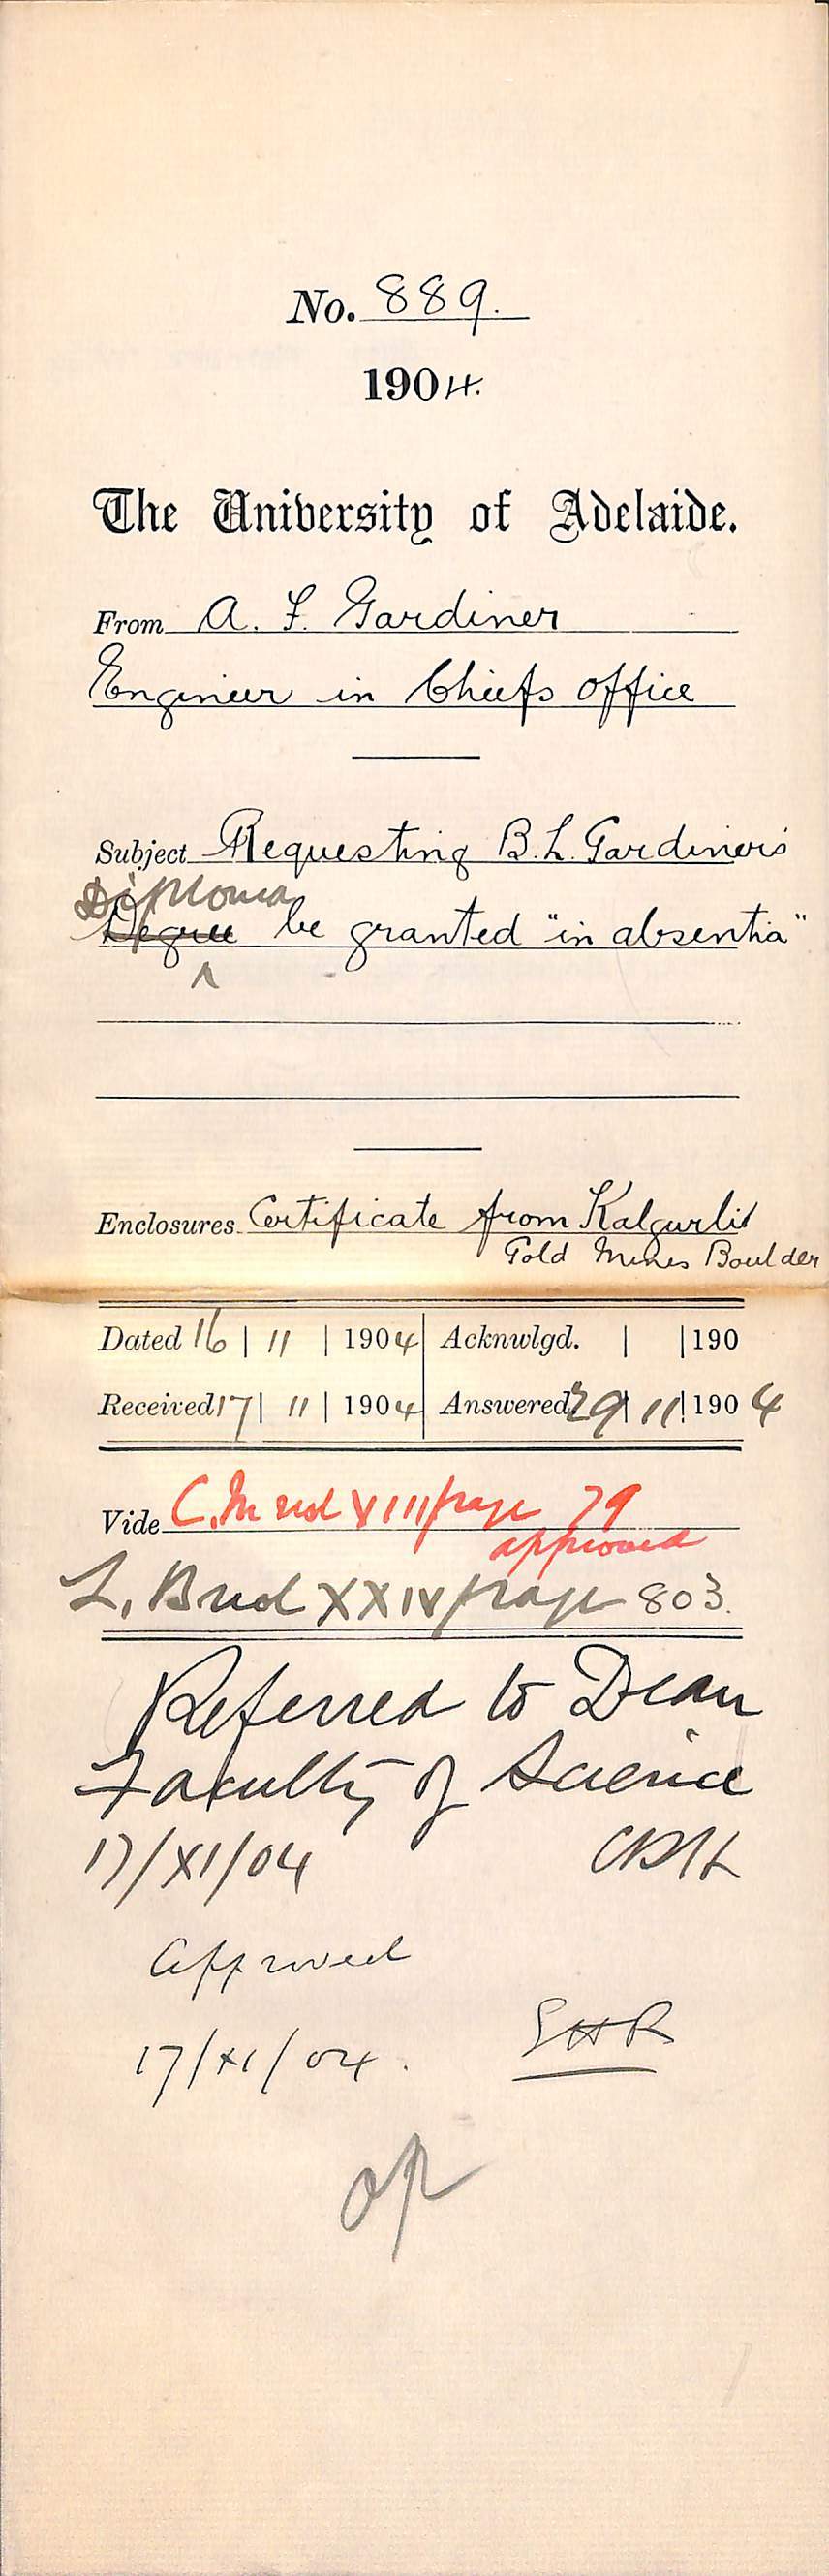 No. 889.
1904.
The University of Adelaide.
From A. F. Gardiner
Engineer in Chiefs office
Subject Requesting B. L. Gardiner's
Diploma
Degree be granted "in absentia"
Enclosures Certificate from Kalgurlie
Gold Mines Boulder
Dated 16 | 11 | 1904 Acknwlgd. | | 190
Received 17 | 11 | 1904 Answered 29 | 11 | 1904
Vide C. M vol XIII page 79
approved
L. B vol XXIV page 803.
Referred to Dean
Faculty of Science
17/XI/04
Approved
17/XI/04. EHR